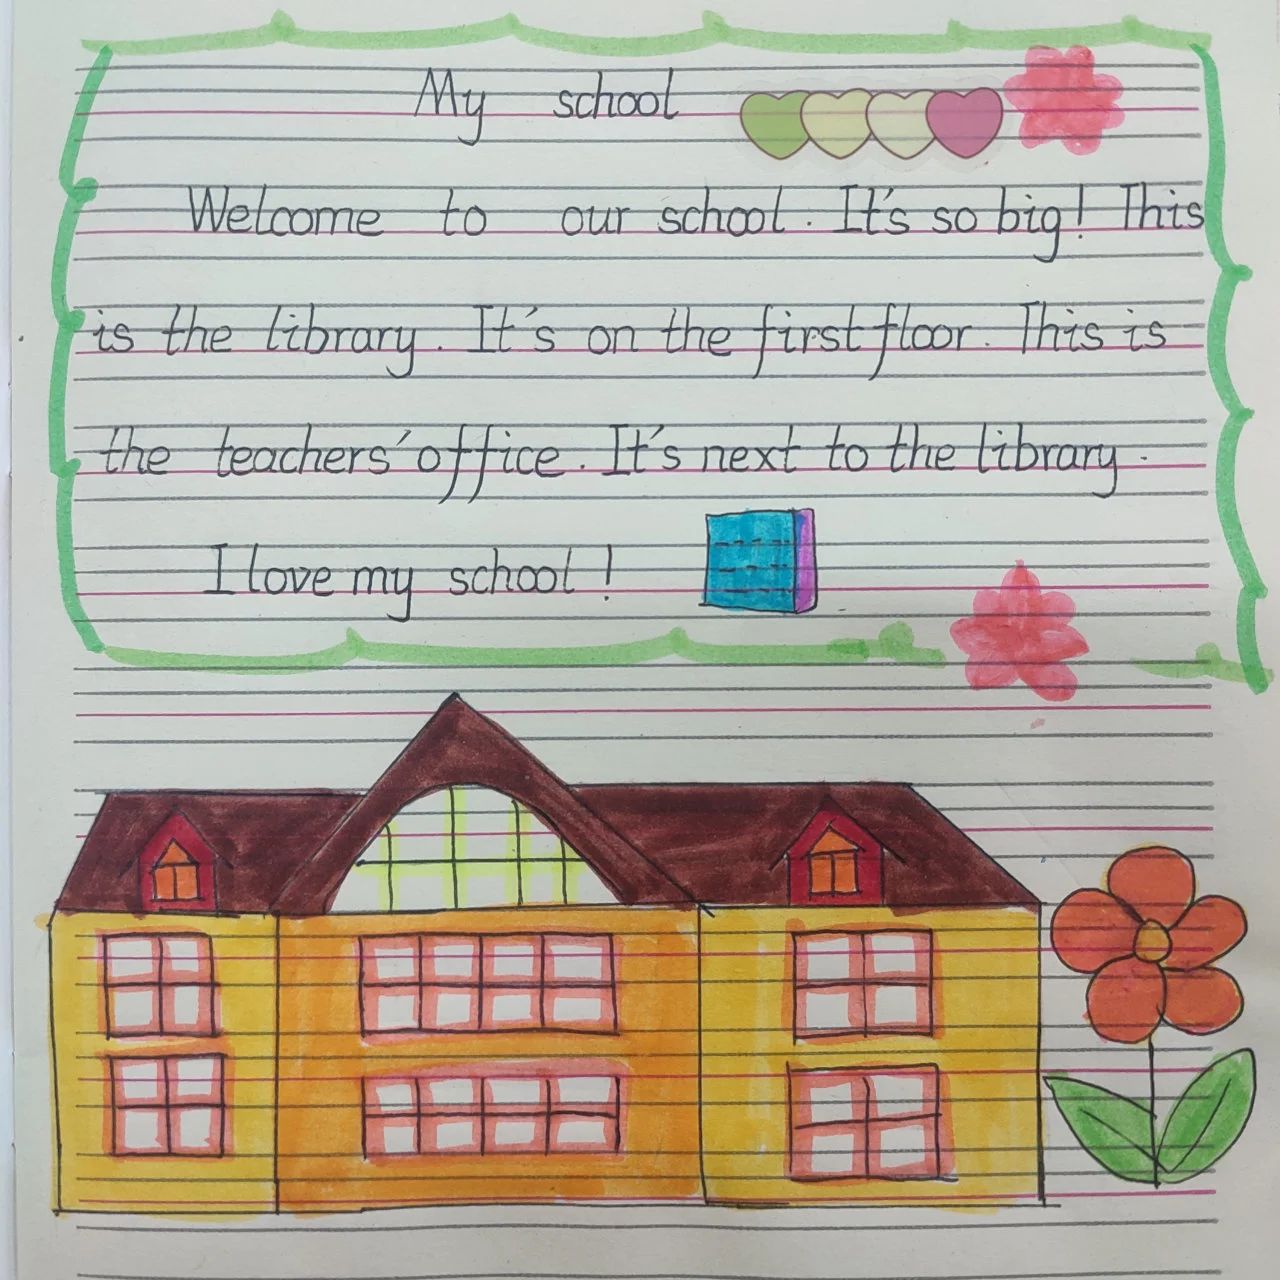 My school
Welcome to our school. It's so big! This
is the library. It's on the first floor. This is
the teachers' office. It's next to the library.
I love my school!